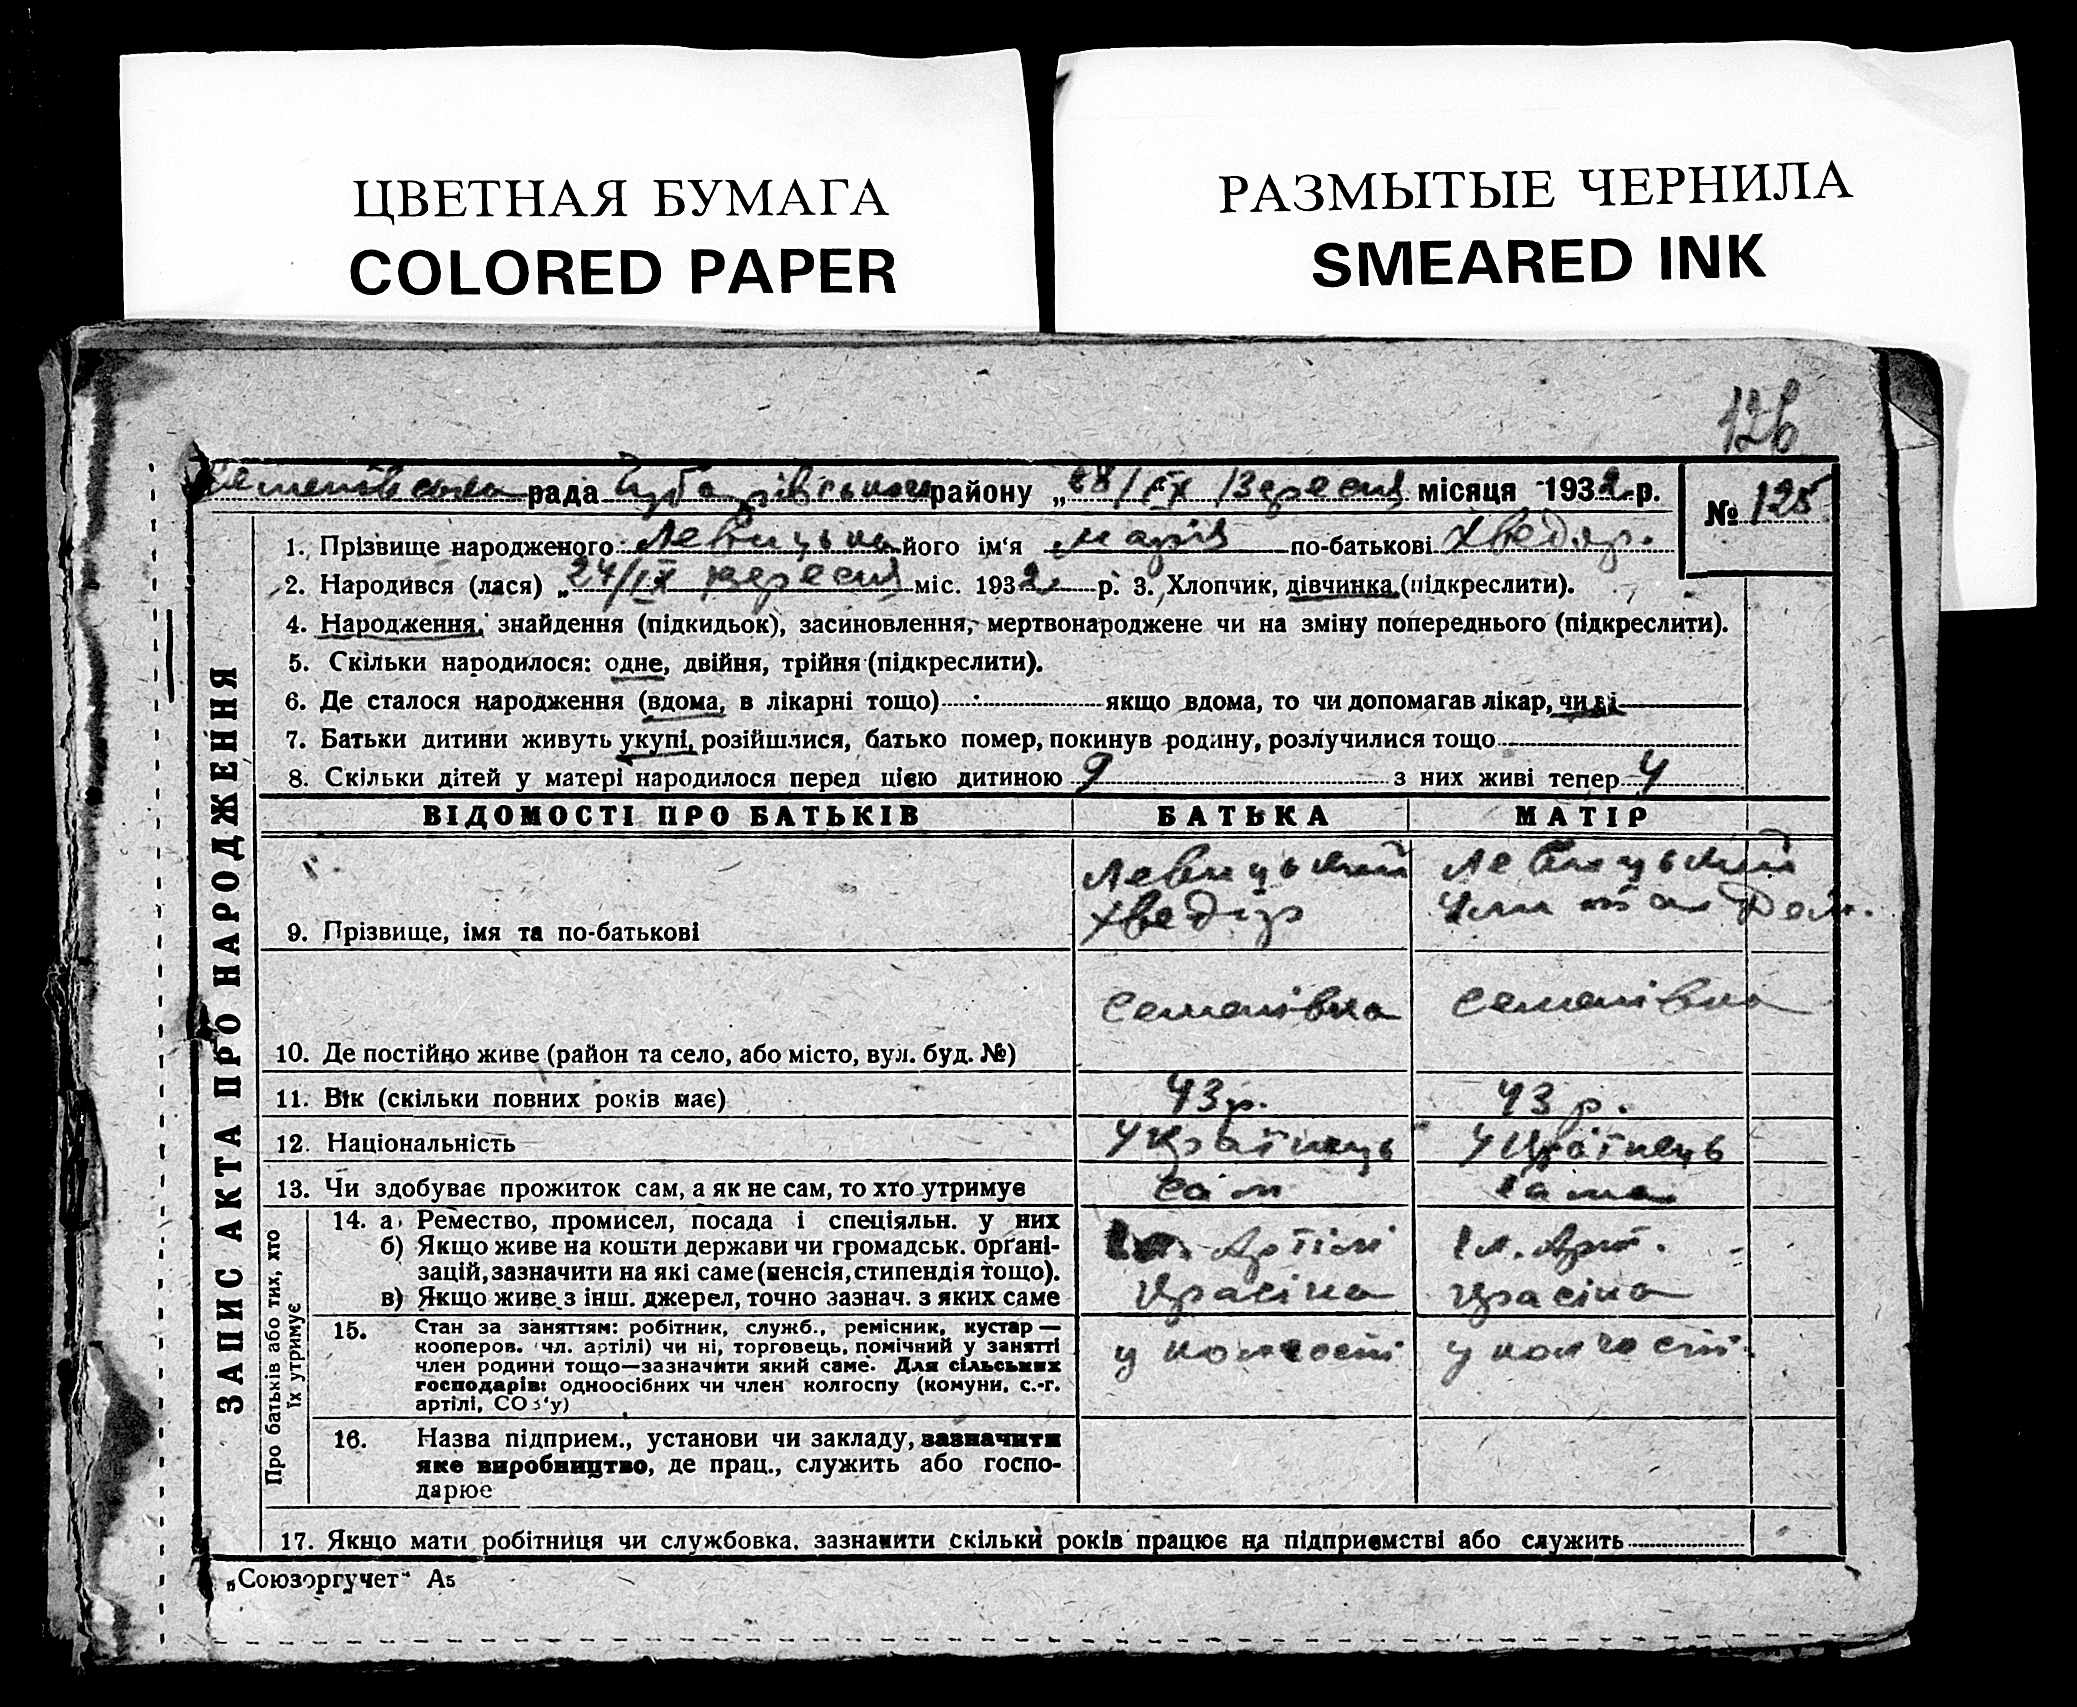 ЦВЕТНАЯ БУМАГА
COLORED PAPER
РАЗМЫТЫЕ ЧЕРНИЛА
SMEARED INK
126
рада Чубарівського району „28/IX Вересня місяця 1932 р. № 125
1. Прізвище народженого Левицька його ім'я Марія по-батькові Хведор.
2. Народився (лася) „24/IX вересня міс. 1932 р. 3. Хлопчик, дівчинка (підкреслити).
4. Народження, знайдення (підкидьок), засиновлення, мертвонароджене чи на зміну попереднього (підкреслити).
5. Скільки народилося: одне, двійня, трійня (підкреслити).
6. Де сталося народження (вдома, в лікарні тощо) якщо вдома, то чи допомагав лікар, чи ні
7. Батьки дитини живуть укупі, розійшлися, батько помер, покинув родину, розлучилися тощо
8. Скільки дітей у матері народилося перед цією дитиною 9 з них живі тепер 4
ЗАПИС АКТА ПРО НАРОДЖЕННЯ
ВІДОМОСТІ ПРО БАТЬКІВ БАТЬКА МАТІР
Левицький Левицький
9. Прізвище, імя та по-батькові Хведір
Семенівка Семенівка
10. Де постійно живе (район та село, або місто, вул. буд. №)
11. Вік (скільки повних років має) 43 р. 43 р.
12. Національність Українець Українець
13. Чи здобуває прожиток сам, а як не сам, то хто утримує сам сама
Про батьків або тих, хто
їх утримує
14. а) Ремество, промисел, посада і спеціяльн. у них
б) Якщо живе на кошти держави чи громадськ. органі- Артілі чл. Арт.
зацій, зазначити на які саме (пенсія, стипендія тощо).
в) Якщо живе з інш. джерел, точно зазнач. з яких саме
15. Стан за заняттям: робітник, служб., ремісник, кустар —
кооперов. чл. артілі) чи ні, торговець, помічний у занятті
член родини тощо—зазначити який саме. Для сільських
господарів: одноосібних чи член колгоспу (комуни, с.-г.
артілі, СОЗ'у)
16. Назва підприєм., установи чи закладу, зазначити
яке виробництво, де прац., служить або госпо-
дарює
17. Якщо мати робітниця чи службовка, зазначити скільки років працює на підприємстві або служить
„Союзоргучет“ А5